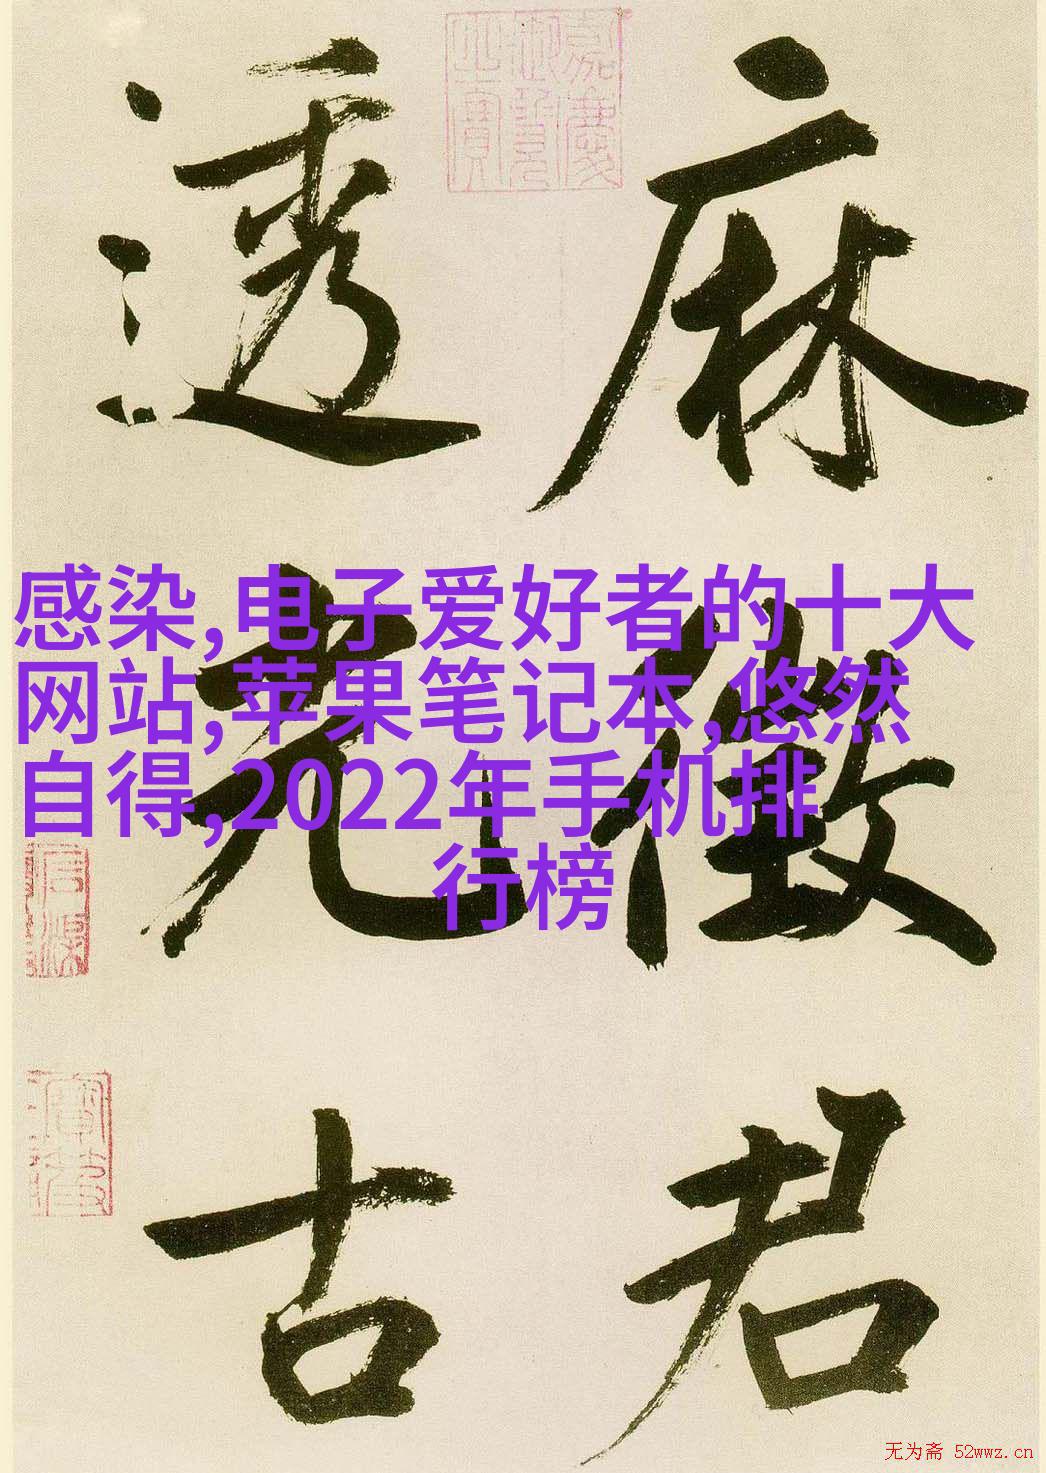 麻徵君
透光古
嘉慶
御覽
之寶
感染,电子爱好者的十大
网站,苹果笔记本,悠然
自得,2022年手机排
行榜
无为斋 52wwz.cn